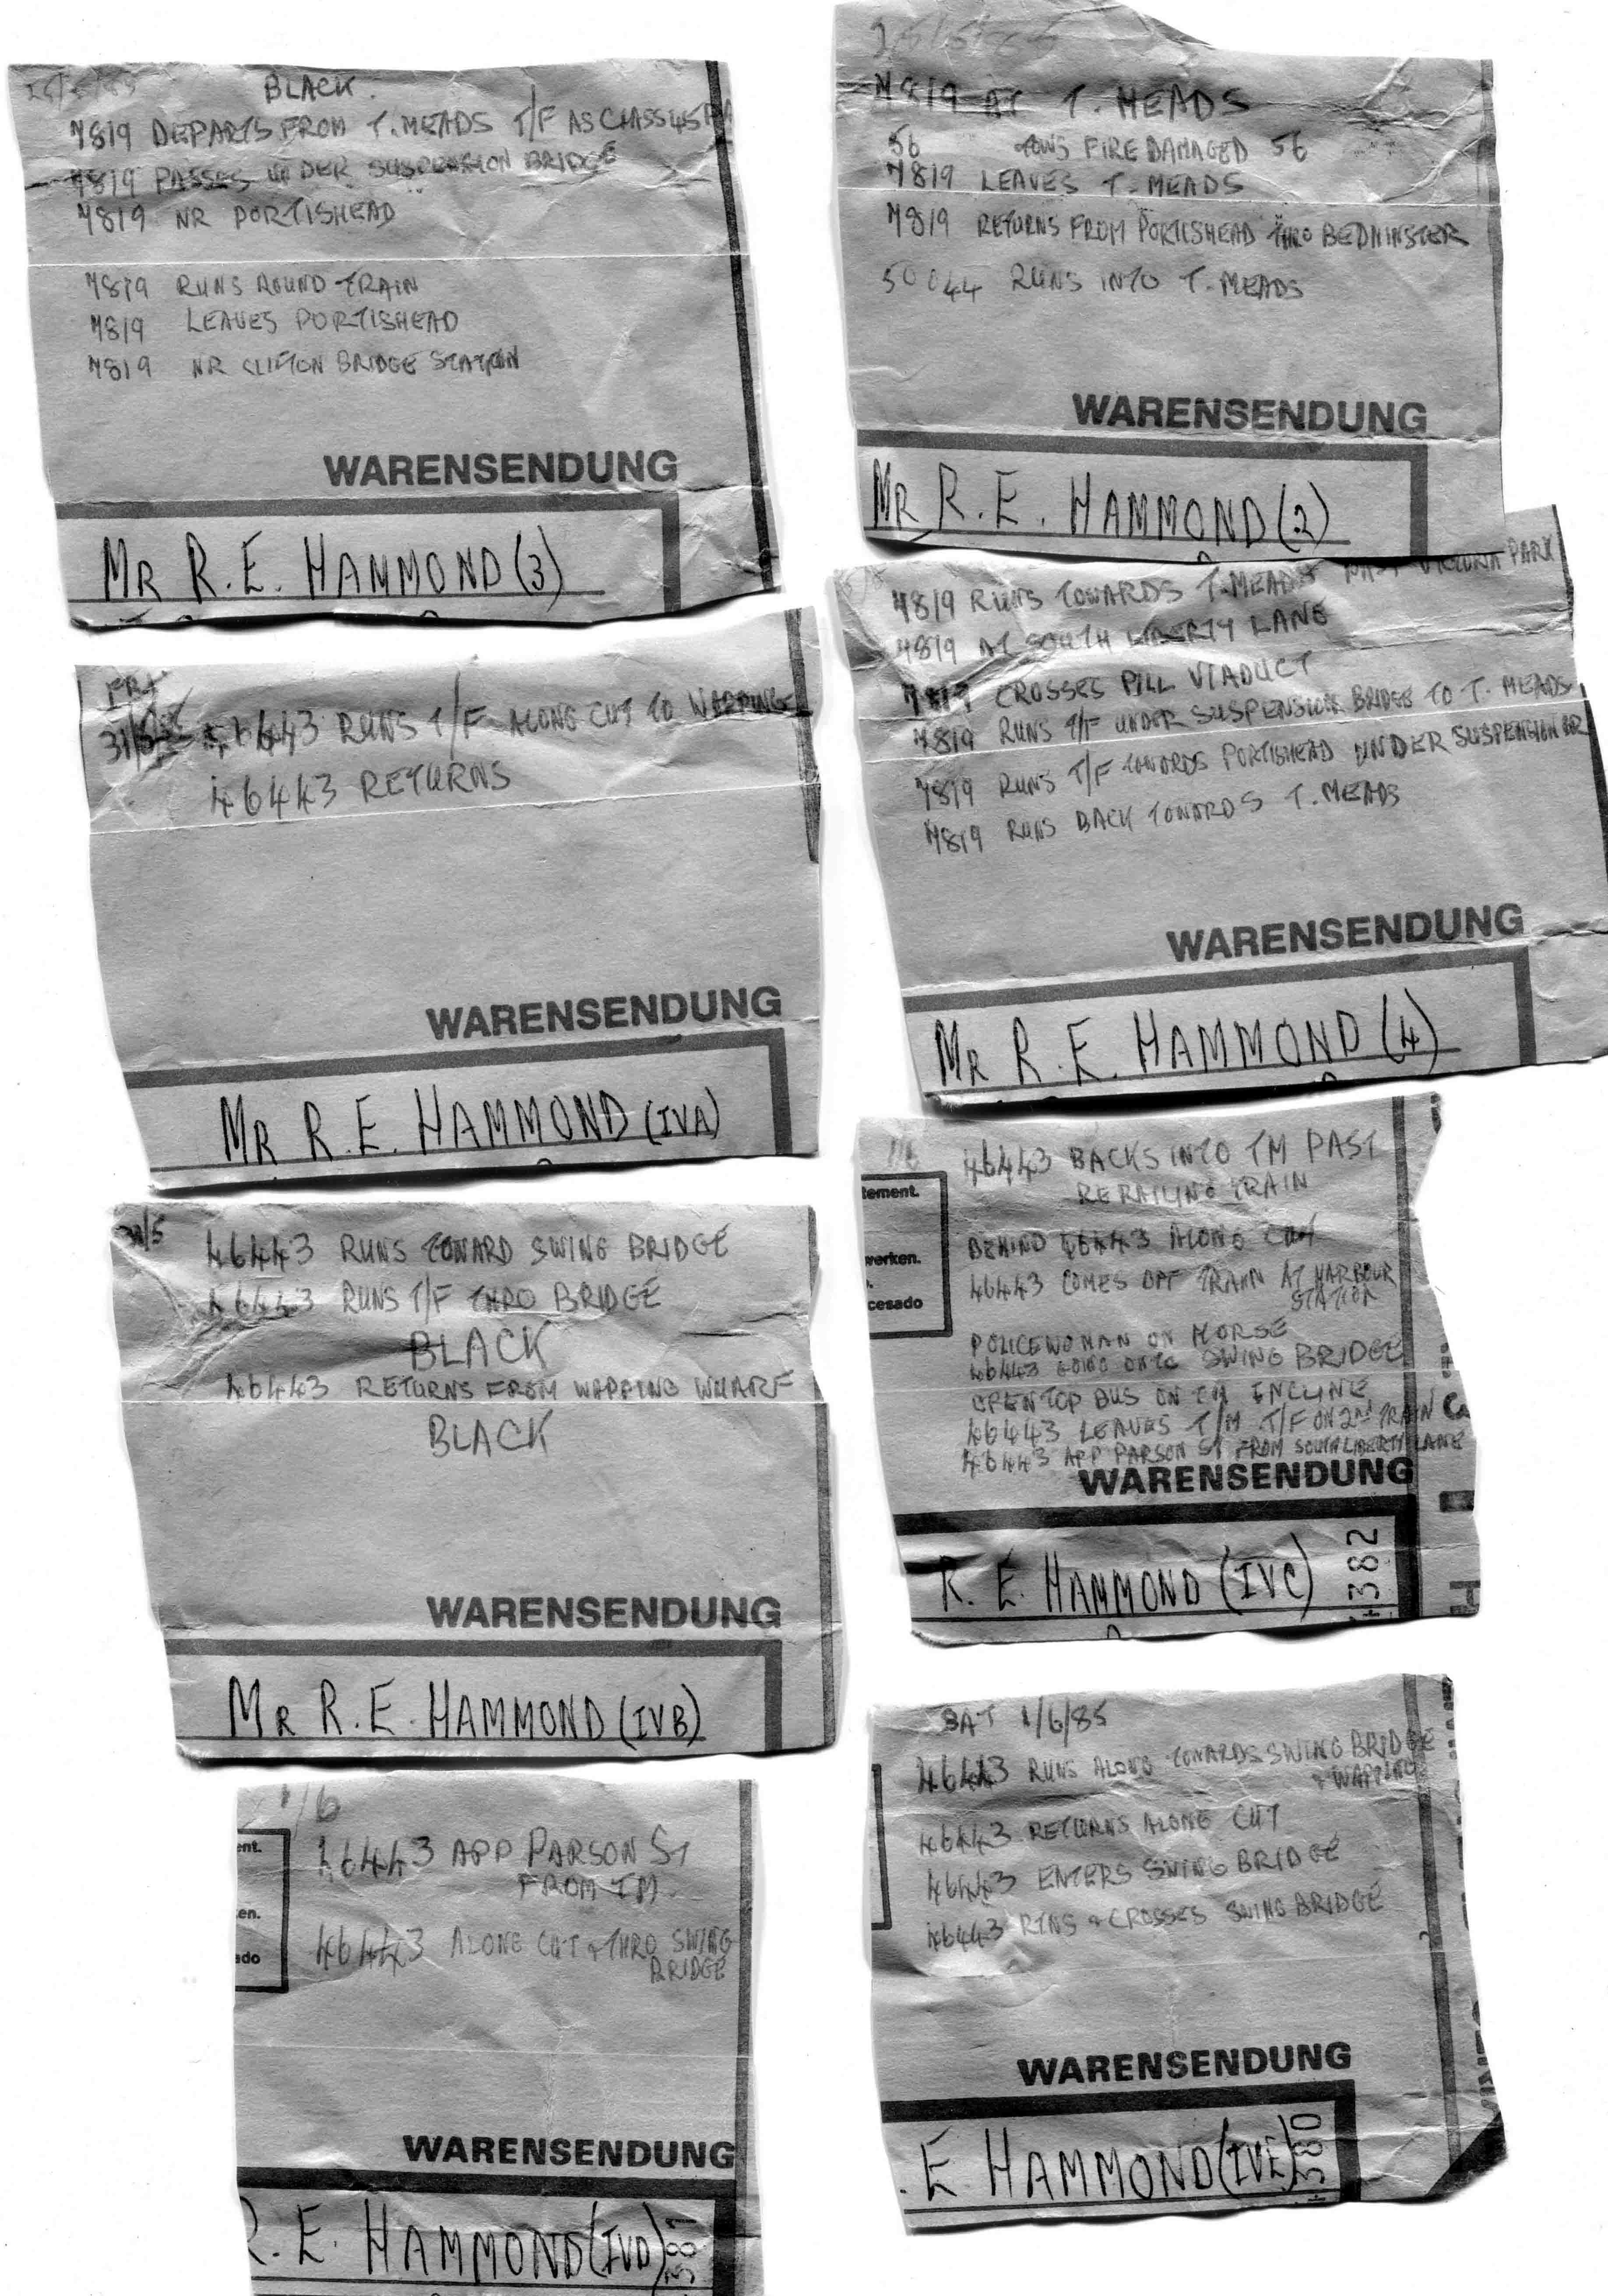 BLACK.
7819 DEPARTS FROM T.MEADS T/F AS CLASS 45
7819 PASSES UNDER SUSPENSION BRIDGE
7819 NR PORTISHEAD
7819 RUNS ROUND TRAIN
7819 LEAVES PORTISHEAD
7819 NR CLIFTON BRIDGE STATION
WARENSENDUNG
MR R.E. HAMMOND (3)
7819 AT T. MEADS
56 TOWS FIRE DAMAGED 56
7819 LEAVES T. MEADS
7819 RETURNS FROM PORTISHEAD THRO BEDMINSTER
50044 RUNS INTO T. MEADS
WARENSENDUNG
MR R.E. HAMMOND (2)
FRI
31/5 46443 RUNS T/F ALONG CUT TO WAPPING
46443 RETURNS
WARENSENDUNG
MR R.E. HAMMOND (IVA)
7819 RUNS TOWARDS T.MEADS PAST VICTORIA PARK
7819 AT SOUTH LIBERTY LANE
7819 CROSSES PILL VIADUCT
7819 RUNS T/F UNDER SUSPENSION BRIDGE TO T. MEADS
7819 RUNS T/F TOWARDS PORTISHEAD UNDER SUSPENSION BR
7819 RUNS BACK TOWARDS T. MEADS
WARENSENDUNG
MR R.E. HAMMOND (4)
46443 RUNS TOWARD SWING BRIDGE
46443 RUNS T/F THRO BRIDGE
BLACK
46443 RETURNS FROM WAPPING WHARF
BLACK
WARENSENDUNG
MR R.E. HAMMOND (IVB)
1/6
46443 BACKS INTO TM PAST
RERAILING TRAIN
tement.
werken.
cesado
BEHIND 46443 ALONG CUT
46443 COMES OFF TRAIN AT HARBOUR
STATION
POLICEWOMAN ON HORSE
46443 GOING ONTO SWING BRIDGE
OPEN TOP BUS ON TM INCLINE
46443 LEAVES T/M T/F ON 2ND TRAIN
46443 APP PARSON ST FROM SOUTH LIBERTY LANE
WARENSENDUNG
R.E. HAMMOND (IVC)
382
1/6
46443 APP PARSON ST
FROM TM.
ent.
en.
ado
46443 ALONG CUT & THRO SWING
BRIDGE
WARENSENDUNG
R.E. HAMMOND (IVD)
SAT 1/6/85
46443 RUNS ALONG TOWARDS SWING BRIDGE
& WAPPING
46443 RETURNS ALONG CUT
46443 ENTERS SWING BRIDGE
46443 RINS & CROSSES SWING BRIDGE
WARENSENDUNG
. E HAMMOND (IVE)
380